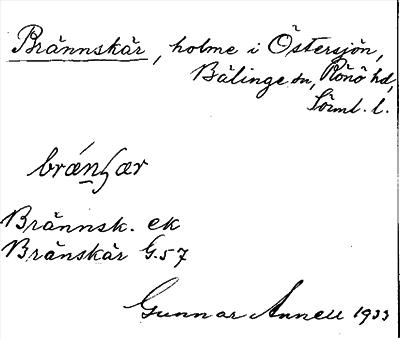 Brännskär, holme i Östersjön,
Bälinge sn, Rönö hd,
Sörml. l.
Brännsk. ek
Bränskär G.57
Gunnar Annell 1933